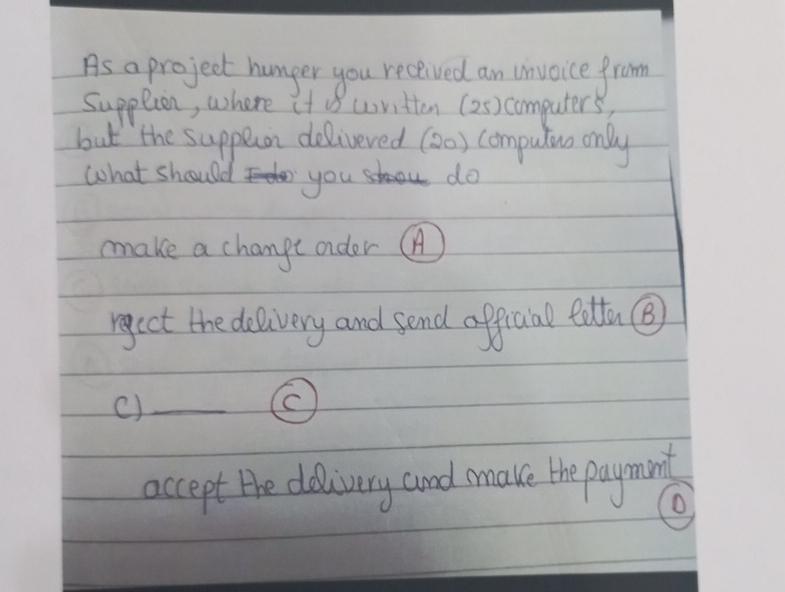 As a project hunger you received an invoice from
Supplier, where it is written (25) computers,
but the supplier delivered (20) computers only
what should you do
make a change order (A)
reject the delivery and send official letter (B)
C) ____ (C)
accept the delivery and make the payment
(D)